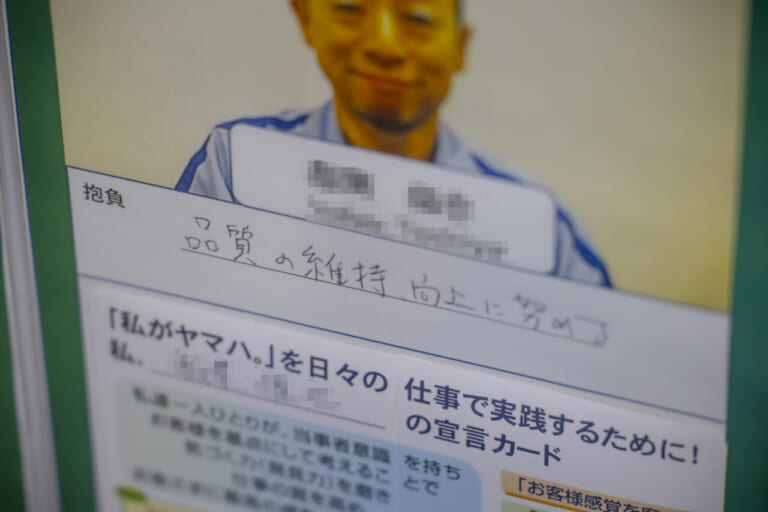 抱負
品質の維持、向上に努める
「私がヤマハ。」を日々の仕事で実践するために!
私、の宣言カード
私達一人ひとりが、当事者意識を持ち
お客様を基点にして考えることで
気づく力(発見力)を磨き
仕事の質を高め
「お客様感覚を